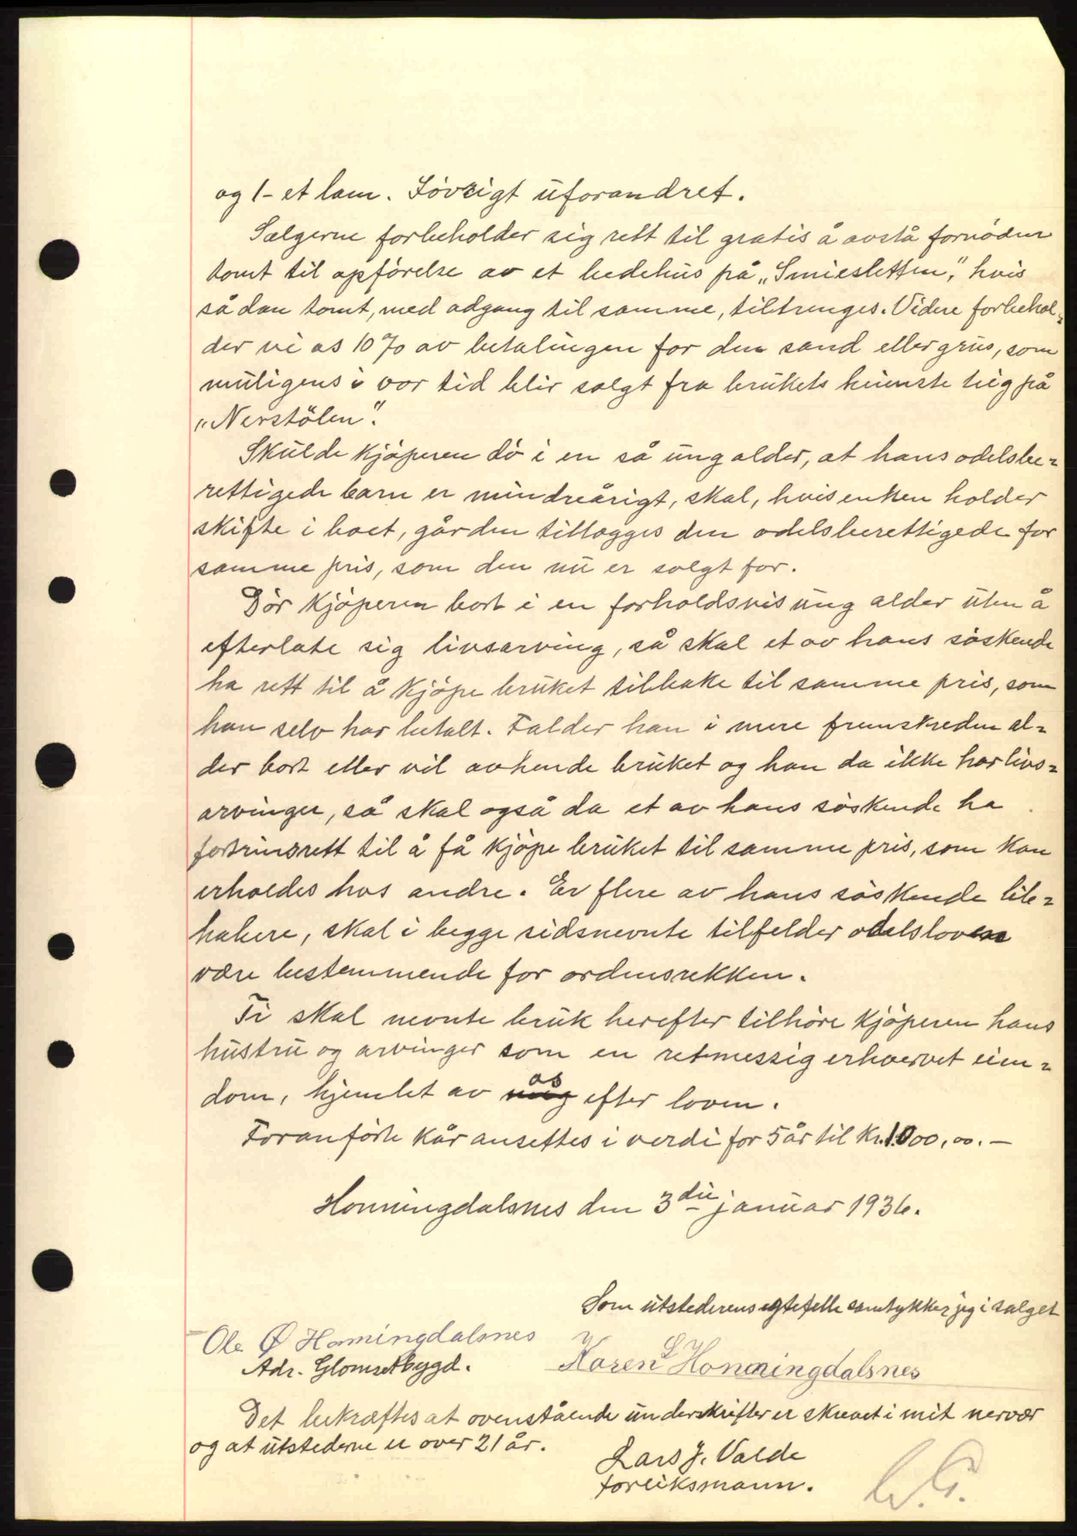 og 1- et lam. Iøvrigt uforandret.
Sælgerne forbeholder sig rett til gratis å avstå fornøden
tomt til opførelse av et bedehus på „Smiesletten", hvis
sådan tomt, med adgang til samme, tiltrenges. Videre forbehol-
der vi os 10 % av betalingen for den sand eller grus, som
muligens i vor tid blir solgt fra brukets heimste teig på
„Nerstølen".
Skulde kjøperen dø i en så ung alder, at hans odelsbe-
rettigede barn er mindreårigt, skal, hvis enken holder
skifte i boet, gården tillægges den odelsberettigede for
samme pris, som den nu er solgt for.
Dør kjøperen bort i en forholdsvis ung alder uten å
efterlate sig livsarving, så skal et av hans søskende
ha rett til å kjøpe bruket tilbake til samme pris, som
han selv har betalt. Falder han i mere fremskreden al-
der bort eller vil avhende bruket og han da ikke har livs-
arvinger, så skal også da et av hans søskende ha
fortrinsrett til å få kjøpe bruket til samme pris, som kan
erholdes hos andre. Er flere av hans søskende lile-
habere, skal i begge sidsnevnte tilfelder odelsloven
være bestemmende for ordensrekken.
Ti skal nevnte bruk herefter tilhøre kjøperen hans
hustru og arvinger som en retmessig erhvervet eien-
dom, hjemlet av os efter loven.
Foranførte kår ansettes i verdi for 5 år til Kr. 1000,00.-
Honningdalsnes den 3die januar 1936.
Som utstederens egtefelle samtykker jeg i salget
Ole Ø Honningdalsnes
Adr. Glomsetbygd.
Karen L Honningdalsnes
Det bekræftes at ovenstående underskrifter er skrevet i mit nervær
og at utstederne er over 21 år.
Lars J. Valde
forliksmann.